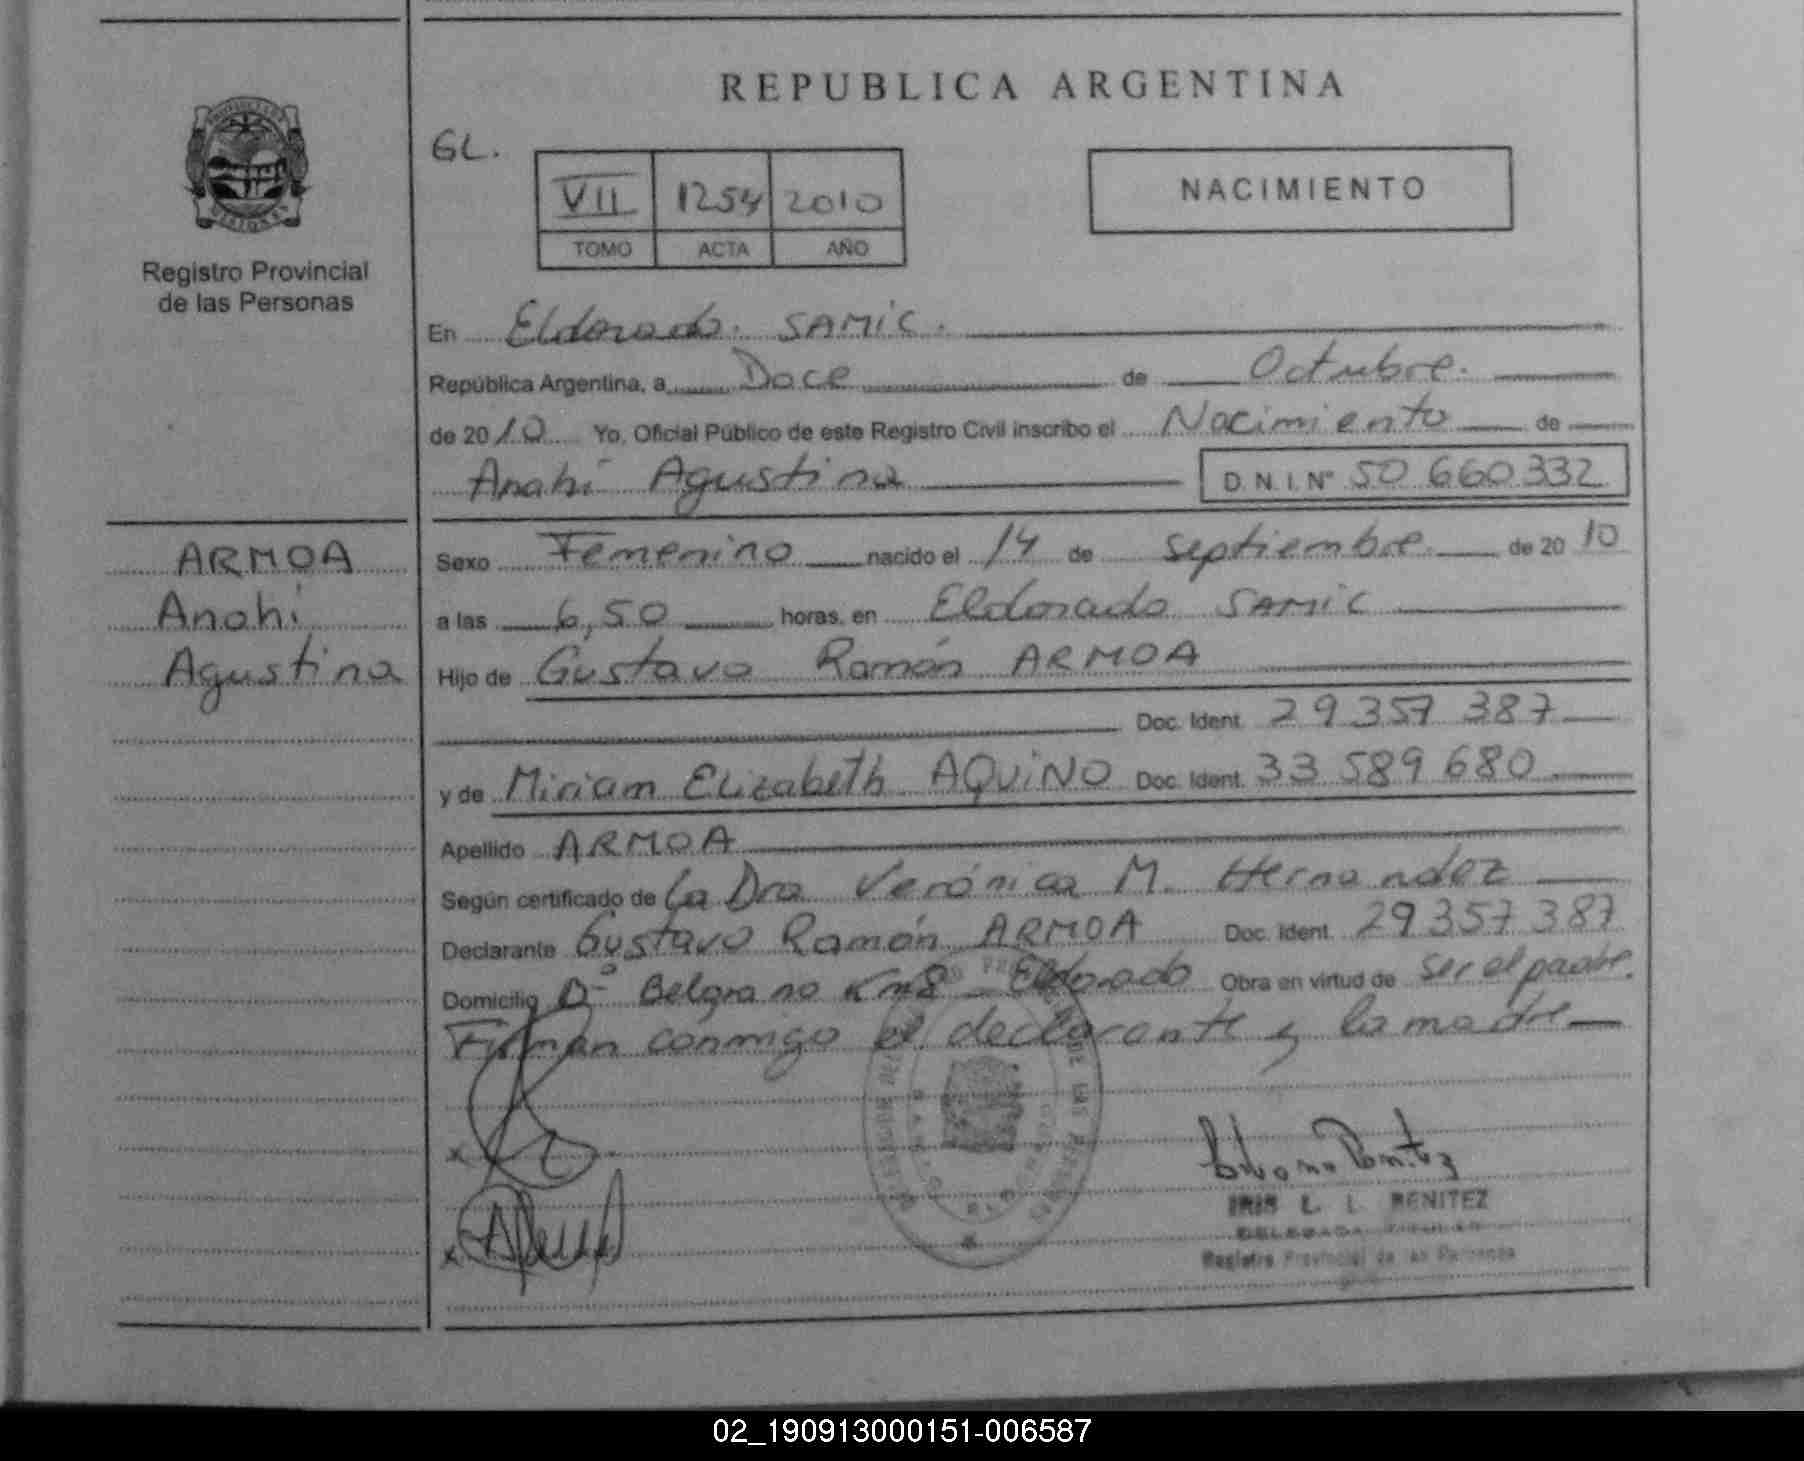 REPUBLICA ARGENTINA
GL.
VII 1254 2010
TOMO ACTA AÑO
NACIMIENTO
Registro Provincial
de las Personas
En Eldorado. SAMIC.
República Argentina, a Doce de Octubre.
de 2010 Yo, Oficial Público de este Registro Civil inscribo el Nacimiento de
Anahí Agustina D.N.I. Nº 50 660332
ARMOA
Anahí
Agustina
Sexo Femenino nacido el 14 de septiembre de 2010
a las 6,50 horas, en Eldorado SAMIC
Hijo de Gustavo Ramón ARMOA
Doc. Ident. 29 357 387
y de Miriam Elizabeth AQUINO Doc. Ident. 33 589 680
Apellido ARMOA
Según certificado de La Dra Verónica M. Hernandez
Declarante Gustavo Ramón ARMOA Doc. Ident. 29 357 387
Domicilio Bº Belgrano Km8 Eldorado Obra en virtud de ser el padre.
Firman conmigo el declarante y la madre
IRIS L. L. BENITEZ
DELEGADA TITULAR
Registro Provincial de las Personas
02_190913000151-006587